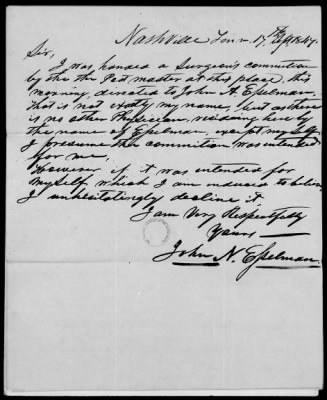 Nashville Tenn. 17th Sept 1847.
Sir,
I was handed a Surgeon's commition
by the the Post master at this place, this
morning, directed to John A. Espelman,
that is not exactly my name, but as there
is no other Physician, residing here by
the name of Espelman, except my self
I presume the commition was intented
for me,
However if it was intended for
myself, which I am induced to believe
I unhesitatingly decline it
I am Very Respectfully
Yours
John N. Esselman.